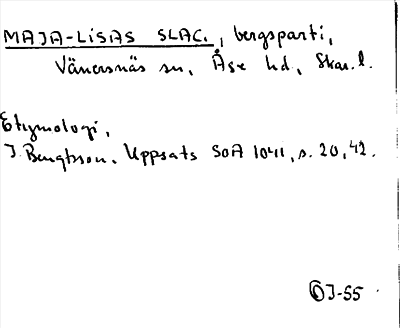 MAJA-LISAS SLAC., bergsparti,
Vänersnäs sn, Åse hd, Skar. l.
Etymologi,
J. Bengtsson. Uppsats SOA 1041, s. 20, 42.
OJ-55